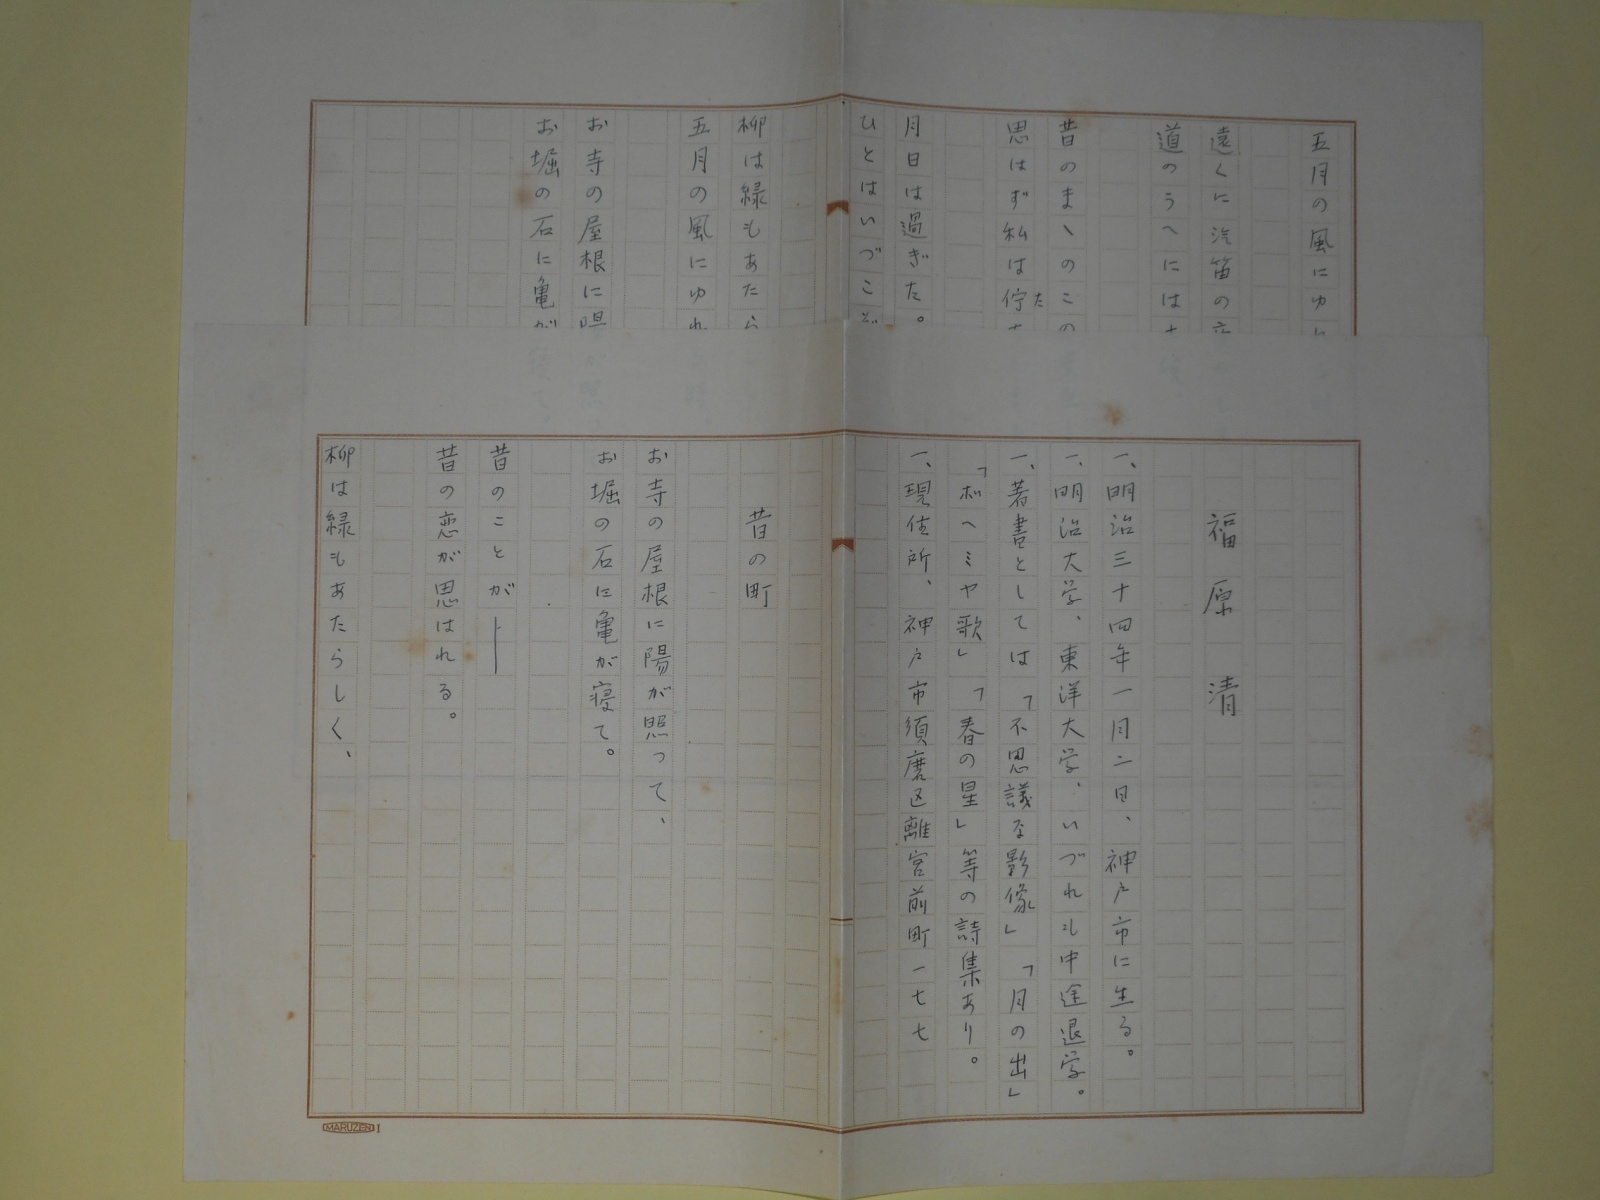 福原清
一、明治三十四年一月二日、神戸市に生る。
一、明治大学、東洋大学、いづれも中途退学。
一、著書としては「不思議な影像」「月の出」
「ボヘミヤ歌」「春の星」等の詩集あり。
一、現住所、神戸市須磨区離宮前町一七七
昔の町
お寺の屋根に陽が照って、
お堀の石に亀が寝て。
昔のことが──
昔の恋が思はれる。
柳は緑もあたらしく、
MARUZEN I
五月の風にゆ
遠くに汽笛の
道のうへには
昔のまゝのこの
思はず私は佇た
月日は過ぎた。
ひとはいづこぞ
柳は緑もあたら
五月の風にゆれ
お寺の屋根に陽
お堀の石に亀が